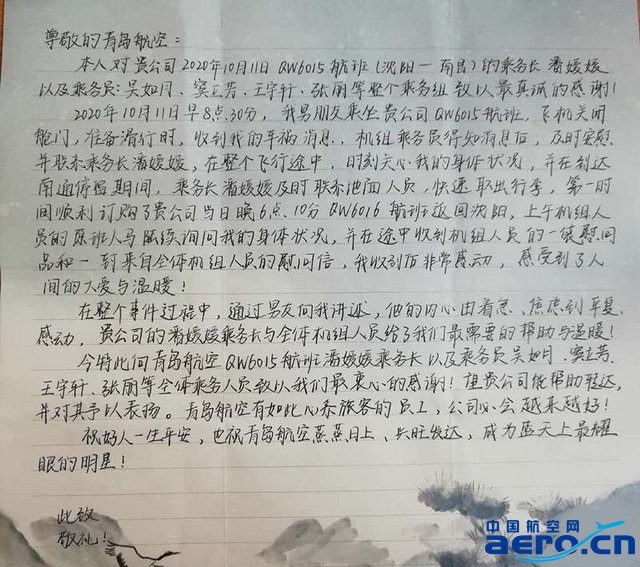 尊敬的青岛航空：
本人对贵公司2020年10月11日QW6015航班（沈阳—南昌）的乘务长潘媛媛
以及乘务员：吴如月、窦立芳、王宇轩、张丽等整个乘务组致以最真诚的感谢！
2020年10月11日早8点30分，我男朋友乘坐贵公司QW6015航班，飞机关闭
舱门，准备滑行时，收到我的车祸消息，机组乘务员得知消息后，及时安慰
并联系乘务长潘媛媛，在整个飞行途中，时刻关心我的身体状况，并在到达
南通停留期间，乘务长潘媛媛及时联系地面人员，快速取出行李，第一时
间顺利订购了贵公司当日晚6点10分QW6016航班返回沈阳，上午机组人
员的原班人马陆续询问我的身体状况，并在途中收到机组人员的一袋慰问
品和一封来自全体机组人员的慰问信，我收到后非常感动，感受到了人
间的大爱与温暖！
在整个事件过程中，通过男友向我讲述，他的内心由着急、焦虑到平复、
感动，贵公司的潘媛媛乘务长与全体机组人员给了我们最需要的帮助与温暖！
今特此向青岛航空QW6015航班潘媛媛乘务长以及乘务员吴如月、窦立芳、
王宇轩、张丽等全体乘务人员致以我们最衷心的感谢！望贵公司能帮助转达，
并对其予以表扬。青岛航空有如此心系旅客的员工，公司必会越来越好！
祝好人一生平安，也祝青岛航空蒸蒸日上、兴旺发达，成为蓝天上最耀
眼的明星！
此致
敬礼！
中国航空网
aero.cn